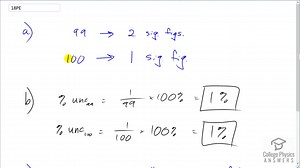 18PE
a) 99 → 2 sig figs.
100 → 1 sig fig.
b) % unc₉₉ = 1/99 × 100% = 1%
% unc₁₀₀ = 1/100 × 100% = 1%
College Physics
Answers.com